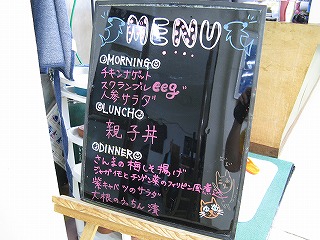 MENU
◎MORNING◎
チキンナゲット
スクランブルeeg
人参サラダ
◎LUNCH◎
親子丼
◎DINNER◎
さんまの梅しそ揚げ
ジャガイモとチンゲン菜のフィリピン風煮込
紫キャベツのサラダ
大根のゆっちん漬